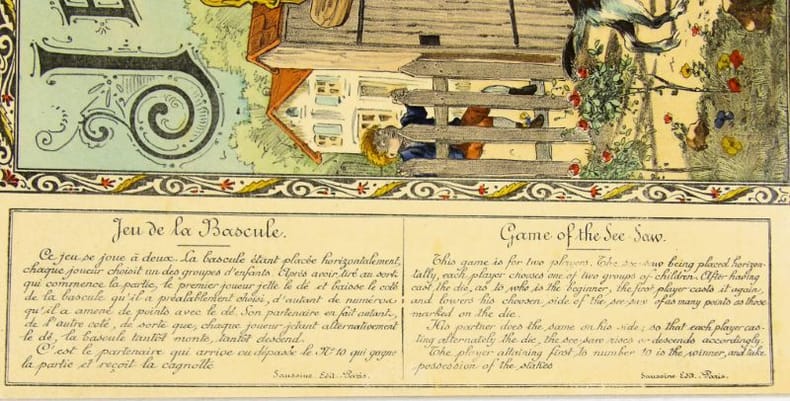 JE
Jeu de la Bascule.
Ce jeu se joue à deux. La bascule étant placée horizontalement,
chaque joueur choisit un des groupes d'enfants. Après avoir tiré au sort
qui commence la partie, le premier joueur jette le dé et baisse le coté
de la bascule qu'il a préalablement choisi, d'autant de numéros
qu'il a amené de points avec le dé. Son partenaire en fait autant,
de l'autre coté, de sorte que, chaque joueur jetant alternativement
le dé, la bascule tantôt monte, tantôt descend.
C'est le partenaire qui arrive ou dépasse le No 10 qui gagne
la partie et reçoit la cagnotte
Saussine Edit. Paris.
Game of the See Saw.
This game is for two players. The see-saw being placed horizon-
tally, each player chooses one of two groups of children. After having
cast the die, as to who is the beginner, the first player casts it again,
and lowers his choosen side of the see-saw of as many points as those
marked on the die.
His partner does the same on his side, so that each player cas-
ting alternately the die, the see-saw rises or descends accordingly.
The player attaining first to number 10 is the winner, and take
possession of the stakes
Saussine Edit. Paris.